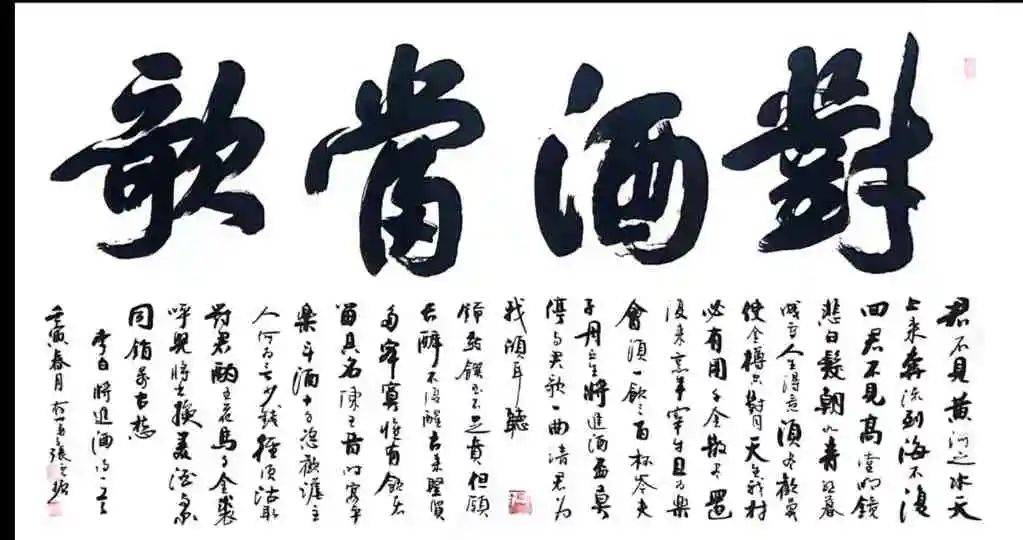 對酒當歌
君不見黃河之水天
上来奔流到海不復
回君不見高堂明鏡
悲白髮朝如青絲暮
成雪人生得意須盡歡莫
使金樽空對月天生我材
必有用千金散盡還
復来烹羊宰牛且為樂
會須一飲三百杯岑夫
子丹丘生將進酒盃莫
停與君歌一曲請君為
我傾耳聽
鐘鼓饌玉不足貴但願
長醉不復醒古来聖賢
皆寂寞惟有飲者
留其名陳王昔時宴平
樂斗酒十千恣歡謔主
人何為言少錢徑須沽取
對君酌五花馬千金裘
呼兒將出換美酒與爾
同銷萬古愁
李白將進酒詩一首
壬寅春月